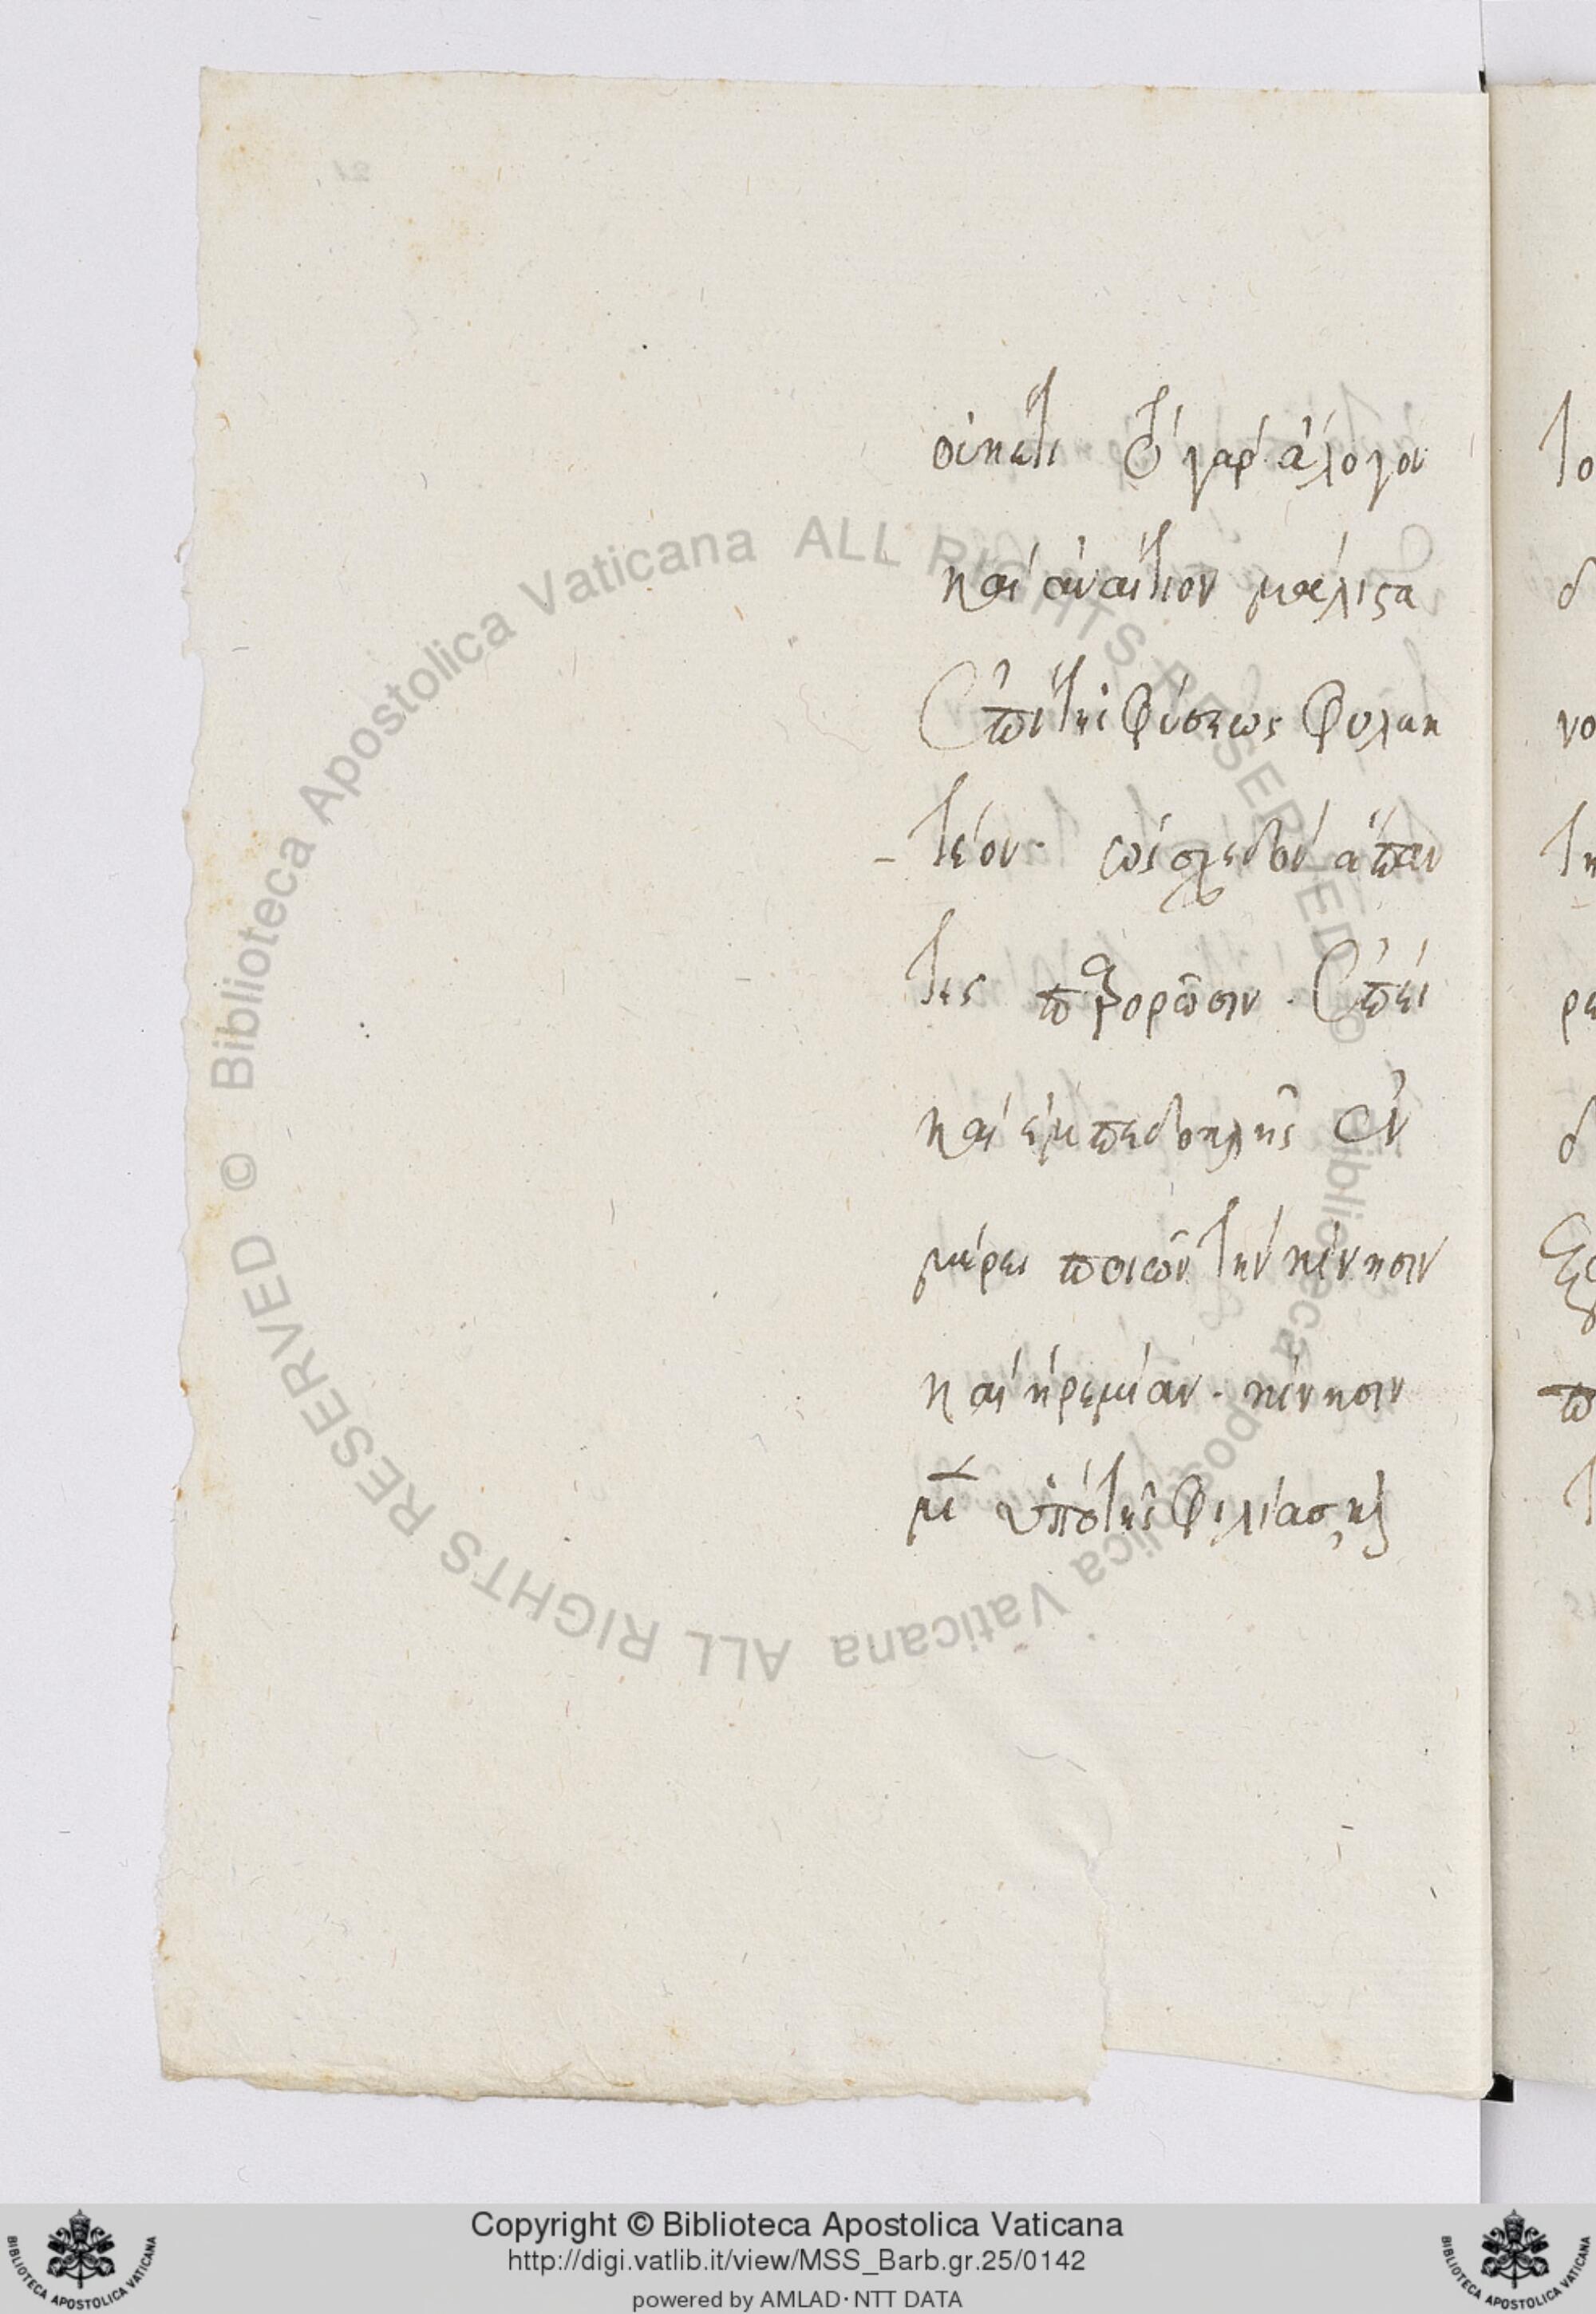 οὐκέτι τὸ γὰρ ἄλογον
καὶ ἀναίτιον μάλιστα
ἐπὶ τῆς φύσεως φυλακ
τέον· ὡς σχεδὸν ἅπαν
τες παρορῶσιν. ἐπεὶ
καὶ ἐμπεδοκλῆς ἐν
μέρει ποιῶν τὴν κίνησιν
καὶ ἠρεμίαν. κίνησιν
μὲν ὑπὸ τῆς φιλίας, καὶ
© Biblioteca Apostolica Vaticana ALL RIGHTS RESERVED © Biblioteca Apostolica Vaticana ALL RIGHTS RESERVED
BIBLIOTECA APOSTOLICA VATICANA
Copyright © Biblioteca Apostolica Vaticana
http://digi.vatlib.it/view/MSS_Barb.gr.25/0142
powered by AMLAD·NTT DATA
BIBLIOTECA APOSTOLICA VATICANA